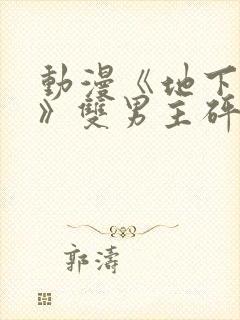 動漫《地下
》雙男主砰
郭濤